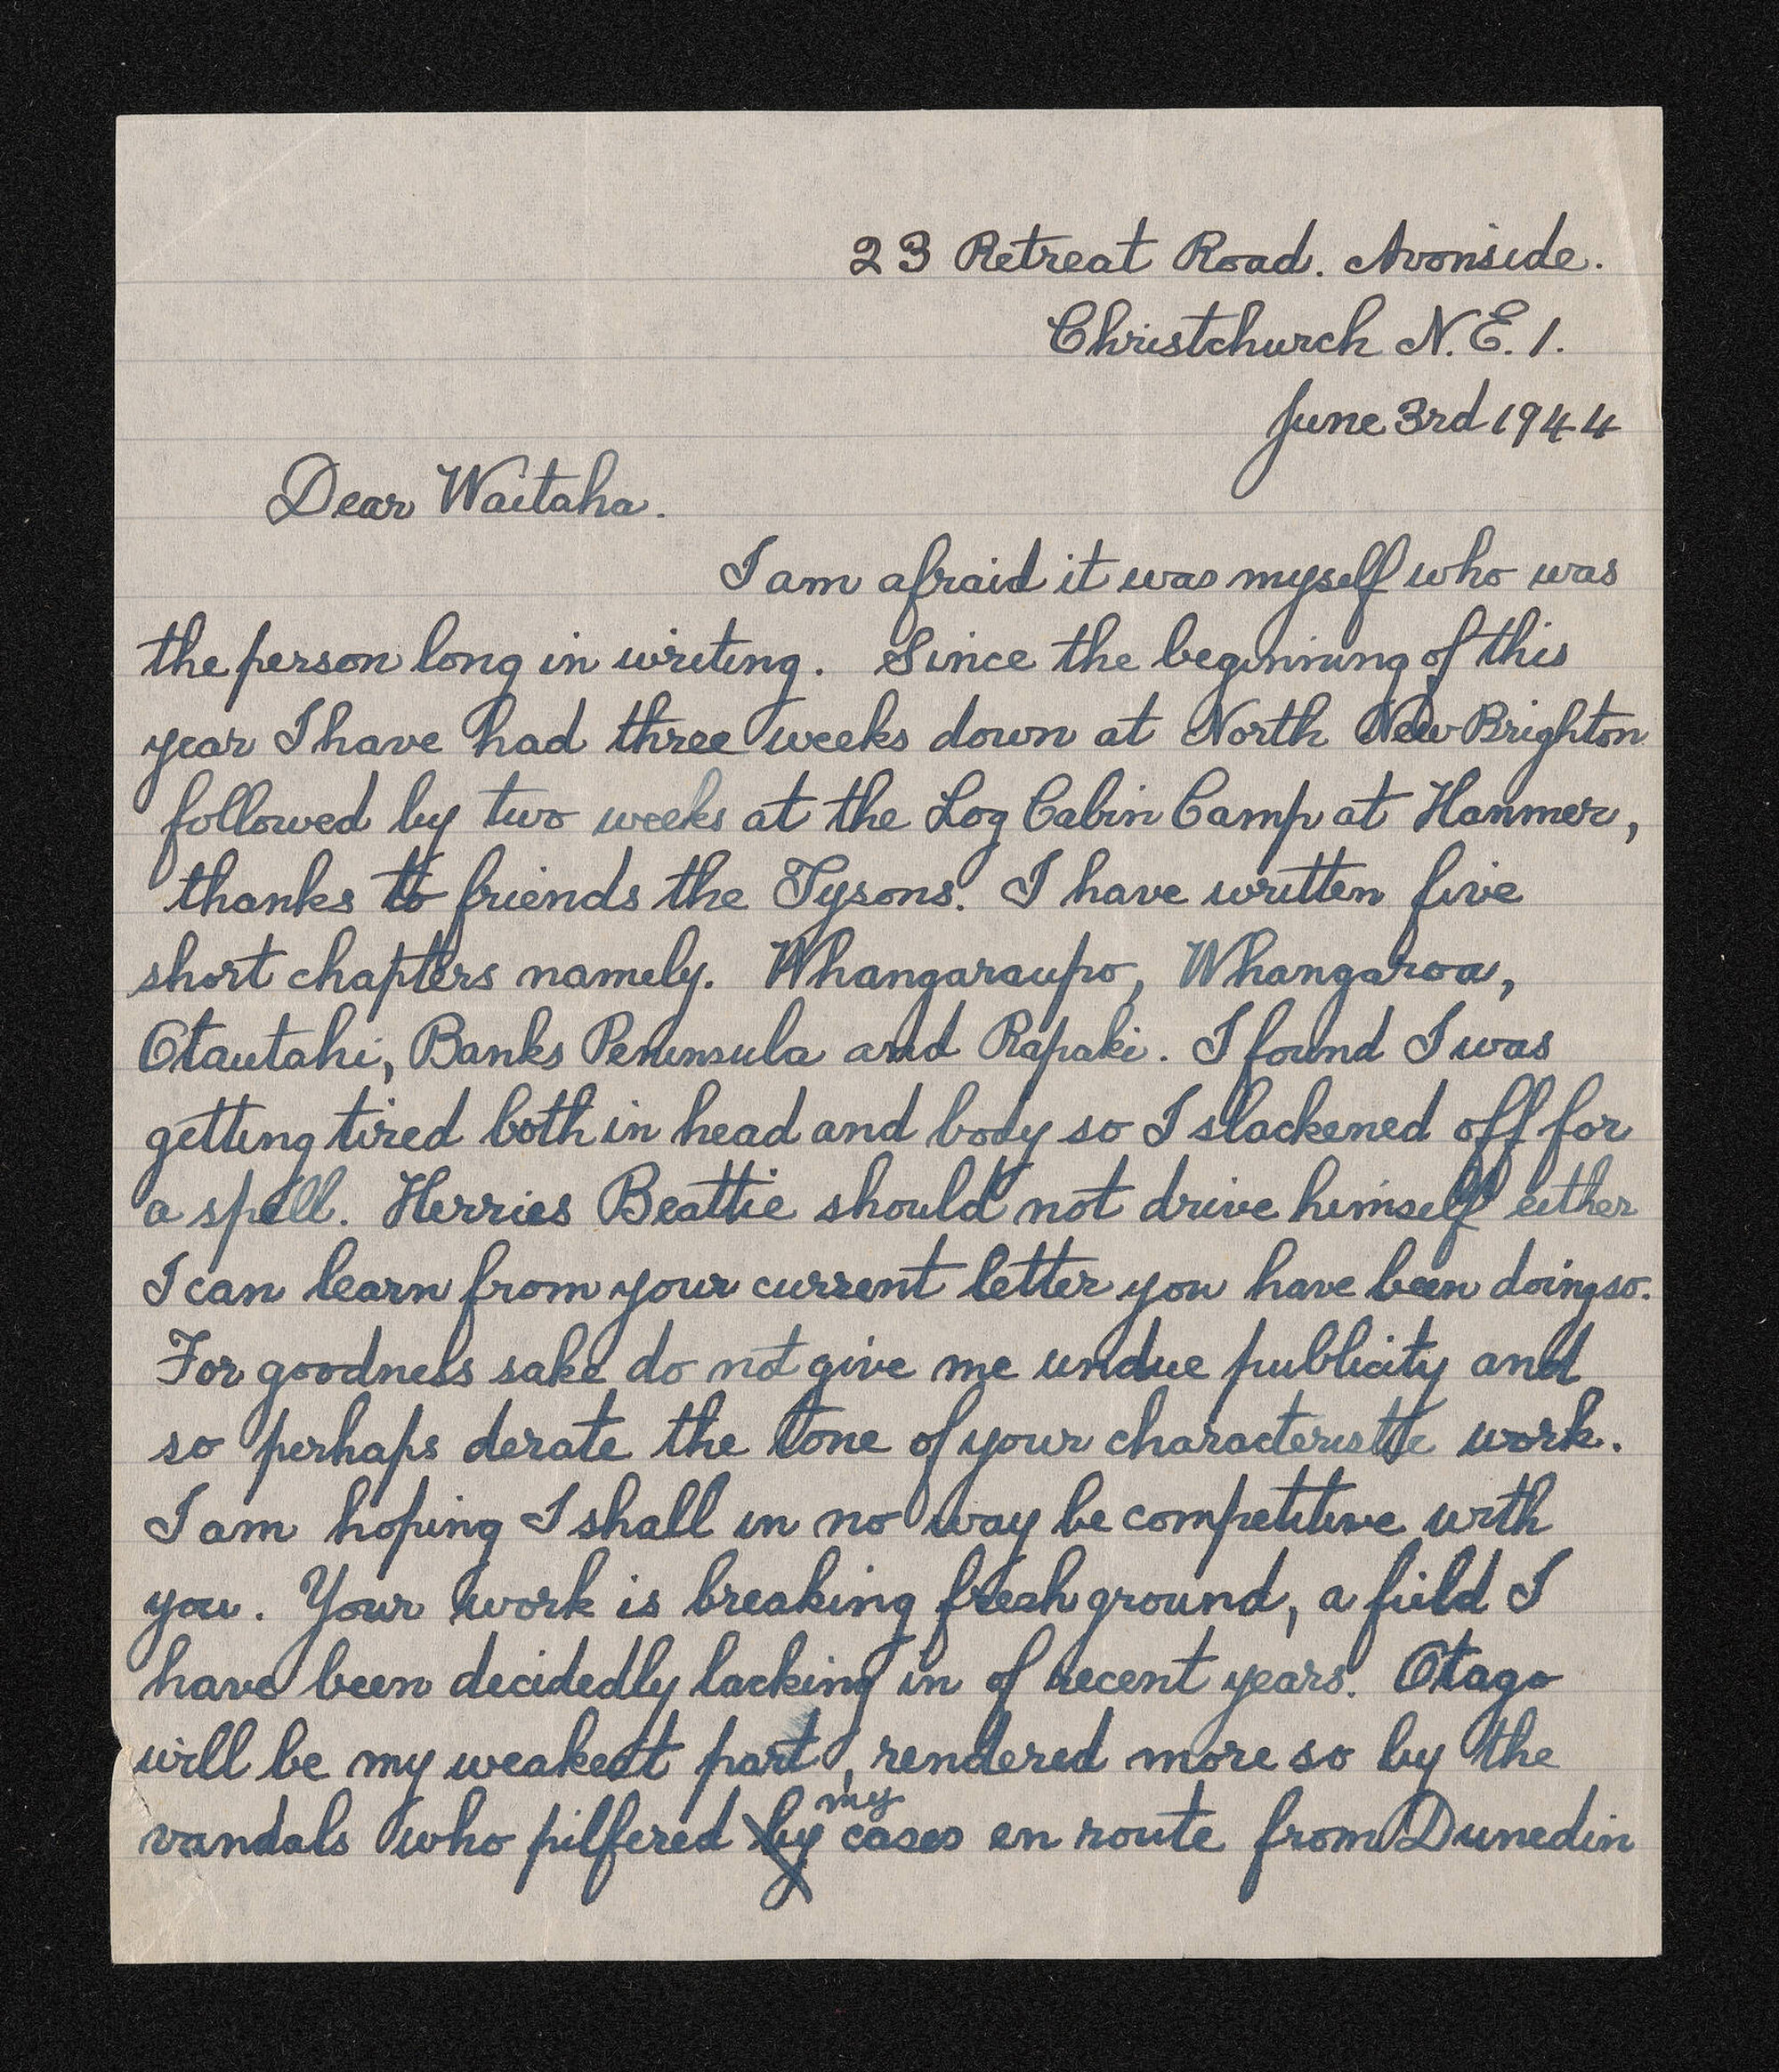 23 Retreat Road. Avonside.
Christchurch N.E.1.
June 3rd 1944
Dear Waitaha.
I am afraid it was myself who was
the person long in writing. Since the beginning of this
year I have had three weeks down at North New Brighton
followed by two weeks at the Log Cabin Camp at Hanmer,
thanks to friends the Tysons. I have written five
short chapters namely. Whangaraupo, Whangaroa,
Otautahi, Banks Peninsula and Rapaki. I found I was
getting tired both in head and body so I slackened off for
a spell. Herries Beattie should not drive himself either
I can learn from your current letter you have been doing so.
For goodness sake do not give me undue publicity and
so perhaps derate the tone of your characteristic work.
I am hoping I shall in no way be competitive with
you. Your work is breaking fresh ground, a field I
have been decidedly lacking in of recent years. Otago
will be my weakest part, rendered more so by the
vandals who pilfered by my cases en route from Dunedin